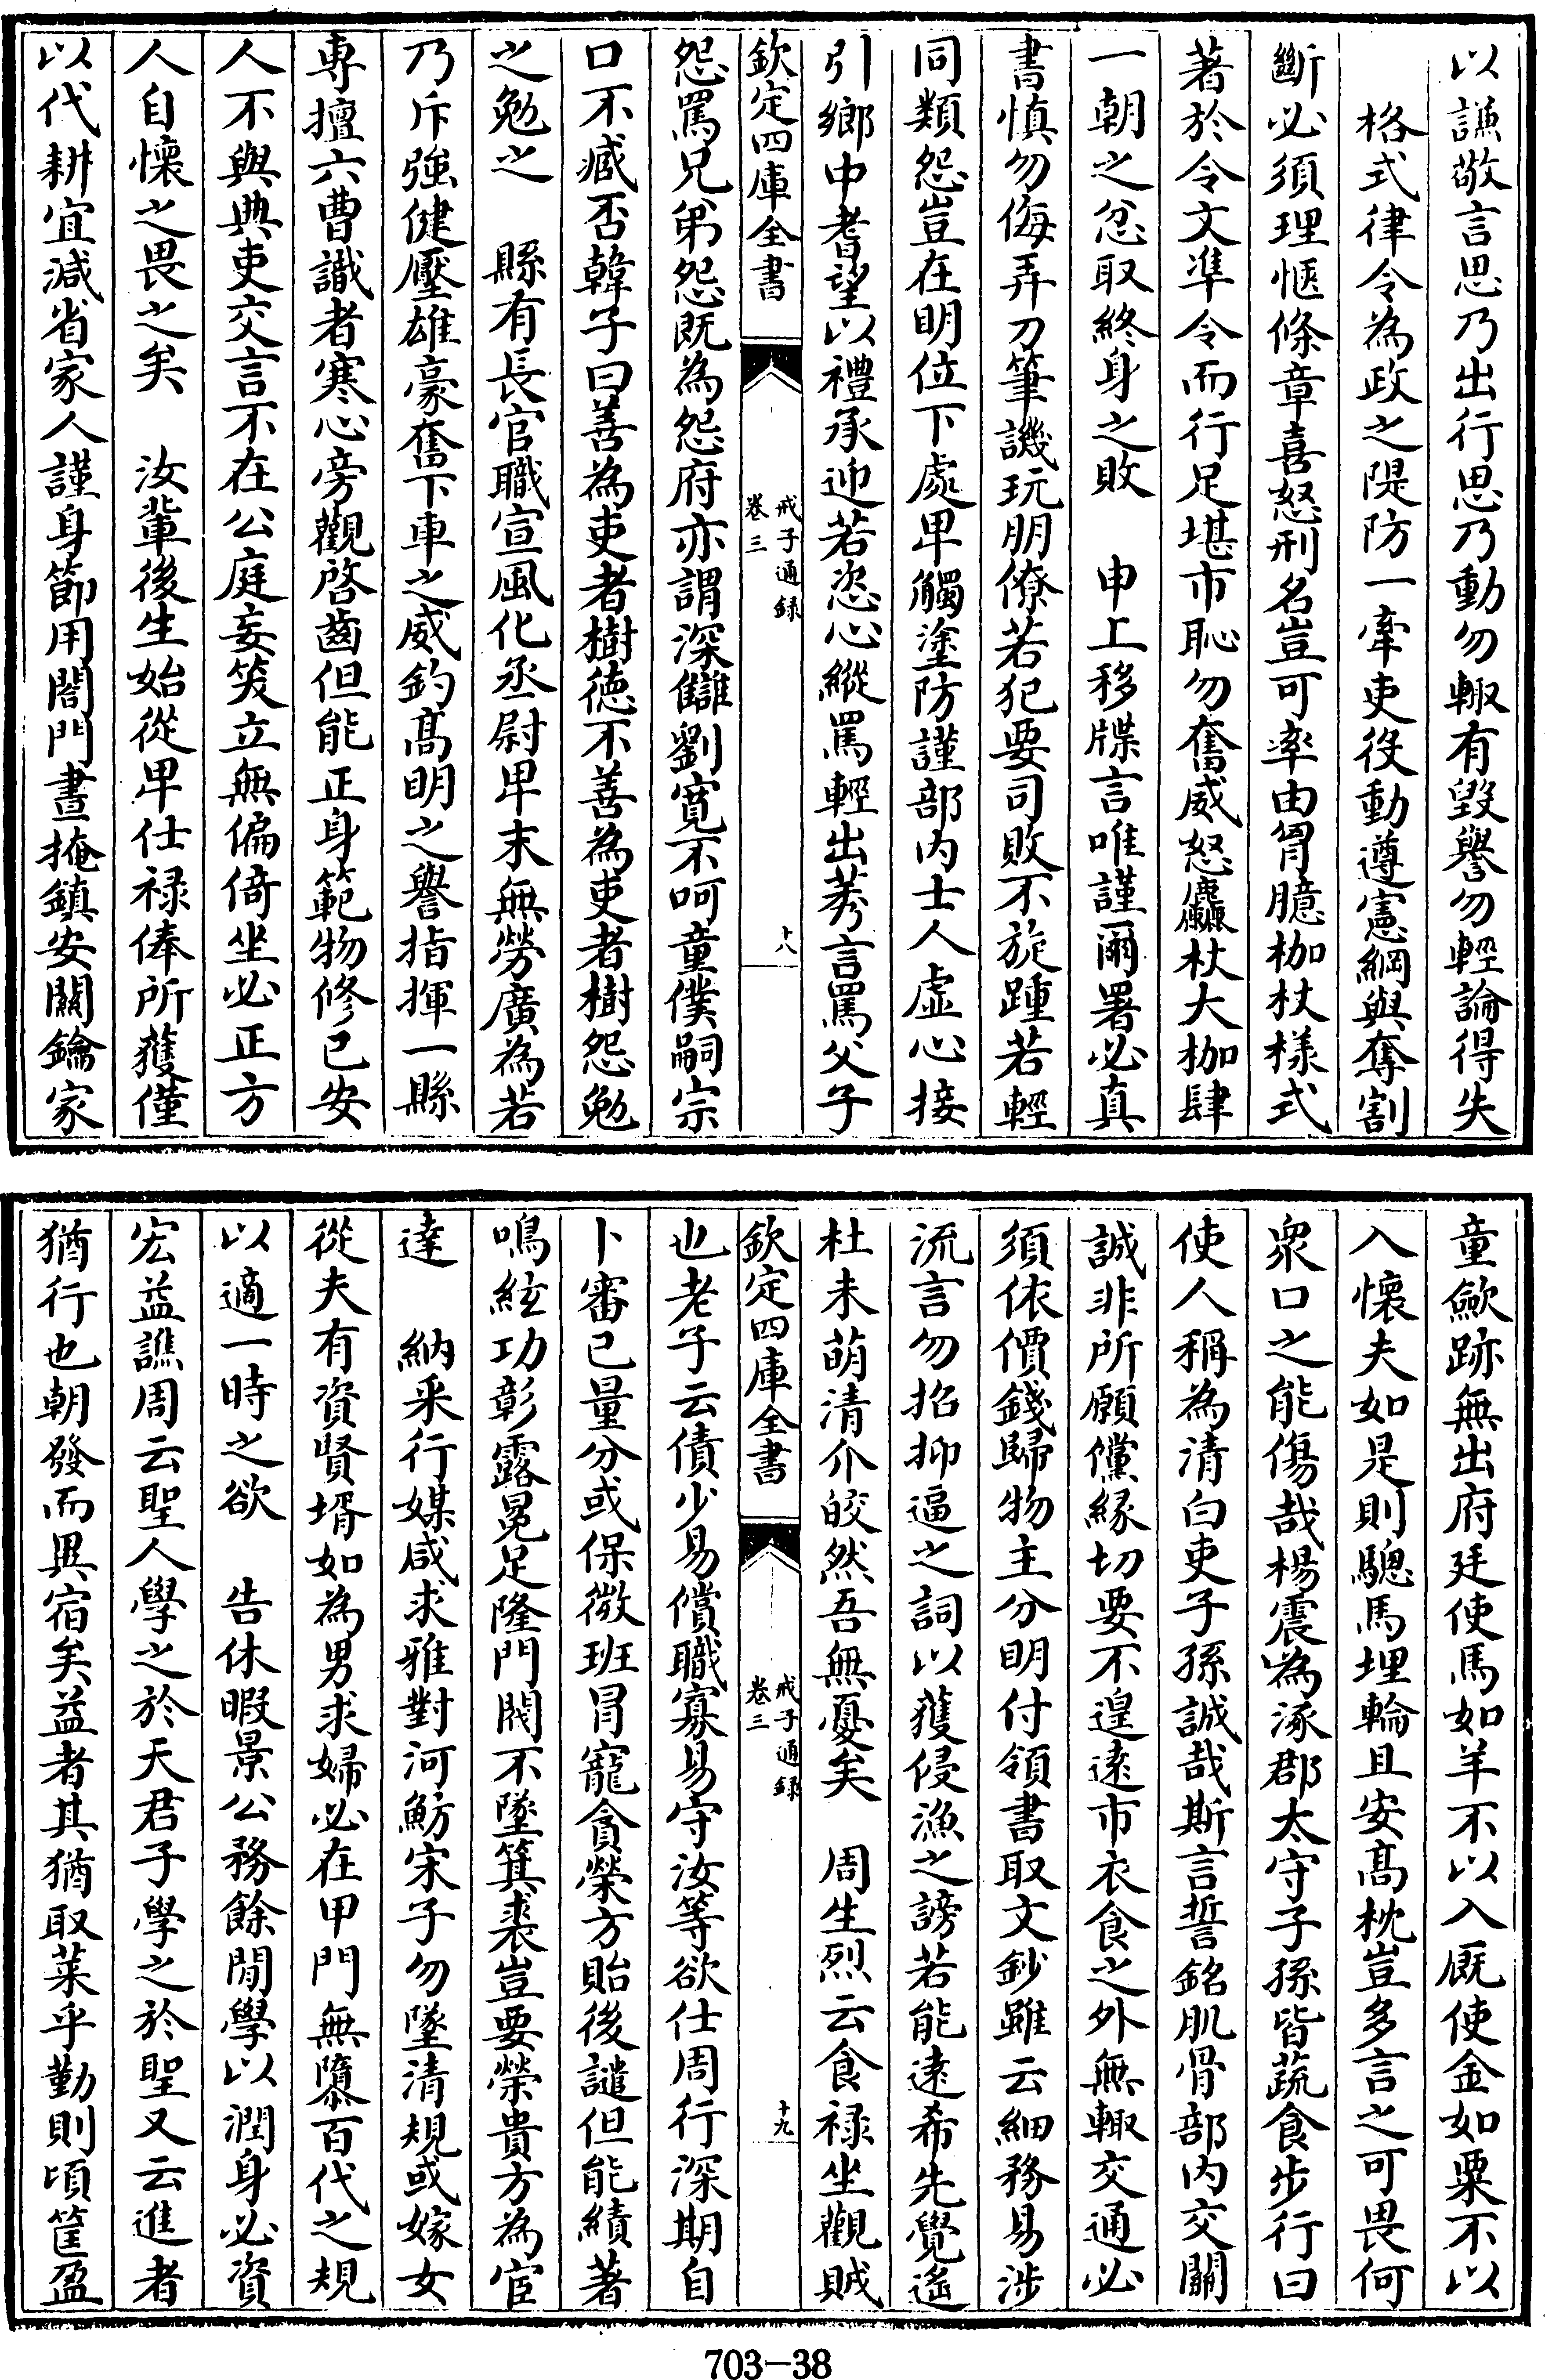 以謙敬言思乃出行思乃動勿輙有毁譽勿輕論得失
格式律令為政之隄防一牽吏役動遵憲綱與奪割
斷必須理愜條章喜怒刑名豈可率由胷臆枷杖様式
著於令文凖令而行足堪市恥勿奮威怒麤杖大枷肆
一朝之忿取終身之敗　申上移牒言唯謹爾署必真
書慎勿侮弄刀筆譏玩朋僚若犯要司敗不旋踵若輕
同類怨豈在明位下處卑觸塗防謹部内士人虚心接
引鄉中耆望以禮承迎若恣心縱罵輕出莠言罵父子
欽定四庫全書
戒子通録
卷三
十八
怨罵兄弟怨既為怨府亦謂深讎劉寛不呵童僕嗣宗
口不臧否韓子曰善為吏者樹徳不善為吏者樹怨勉
之勉之　縣有長官職宣風化丞尉卑末無勞廣為若
乃斥強健壓雄豪奮下車之威釣髙明之譽指揮一縣
専擅六曹識者寒心旁觀啓齒但能正身範物修已安
人不與典吏交言不在公庭妄笑立無偏倚坐必正方
人自懷之畏之矣　汝輩後生始從卑仕禄俸所獲僅
以代耕宜減省家人謹身節用閤門晝掩鎮安關鑰家
童歛跡無出府廷使馬如羊不以入厩使金如粟不以
入懷夫如是則驄馬埋輪且安髙枕豈多言之可畏何
衆口之能傷哉楊震為涿郡太守子孫皆蔬食步行曰
使人稱為清白吏子孫誠哉斯言誓銘肌骨部内交關
誠非所願儻緣切要不遑逺市衣食之外無輙交通必
須依價錢歸物主分明付領書取文鈔雖云細務易涉
流言勿招抑逼之詞以獲侵漁之謗若能逺希先覺遙
杜未萌清介皎然吾無憂矣　周生烈云食禄坐觀賊
欽定四庫全書
戒子通録
卷三
十九
也老子云債少易償職寡易守汝等欲仕周行深期自
卜審已量分或保微班冒寵貪榮方貽後譴但能績著
鳴絃功彰露冕足隆門閥不墜箕裘豈要榮貴方為宦
達　納采行媒咸求雅對河魴宋子勿墜清規或嫁女
從夫有資賢壻如為男求婦必在甲門無隳百代之規
以適一時之欲　告休暇景公務餘閒學以潤身必資
宏益譙周云聖人學之於天君子學之於聖又云進者
猶行也朝發而異宿矣益者其猶取菜乎勤則頃筐盈
703—38